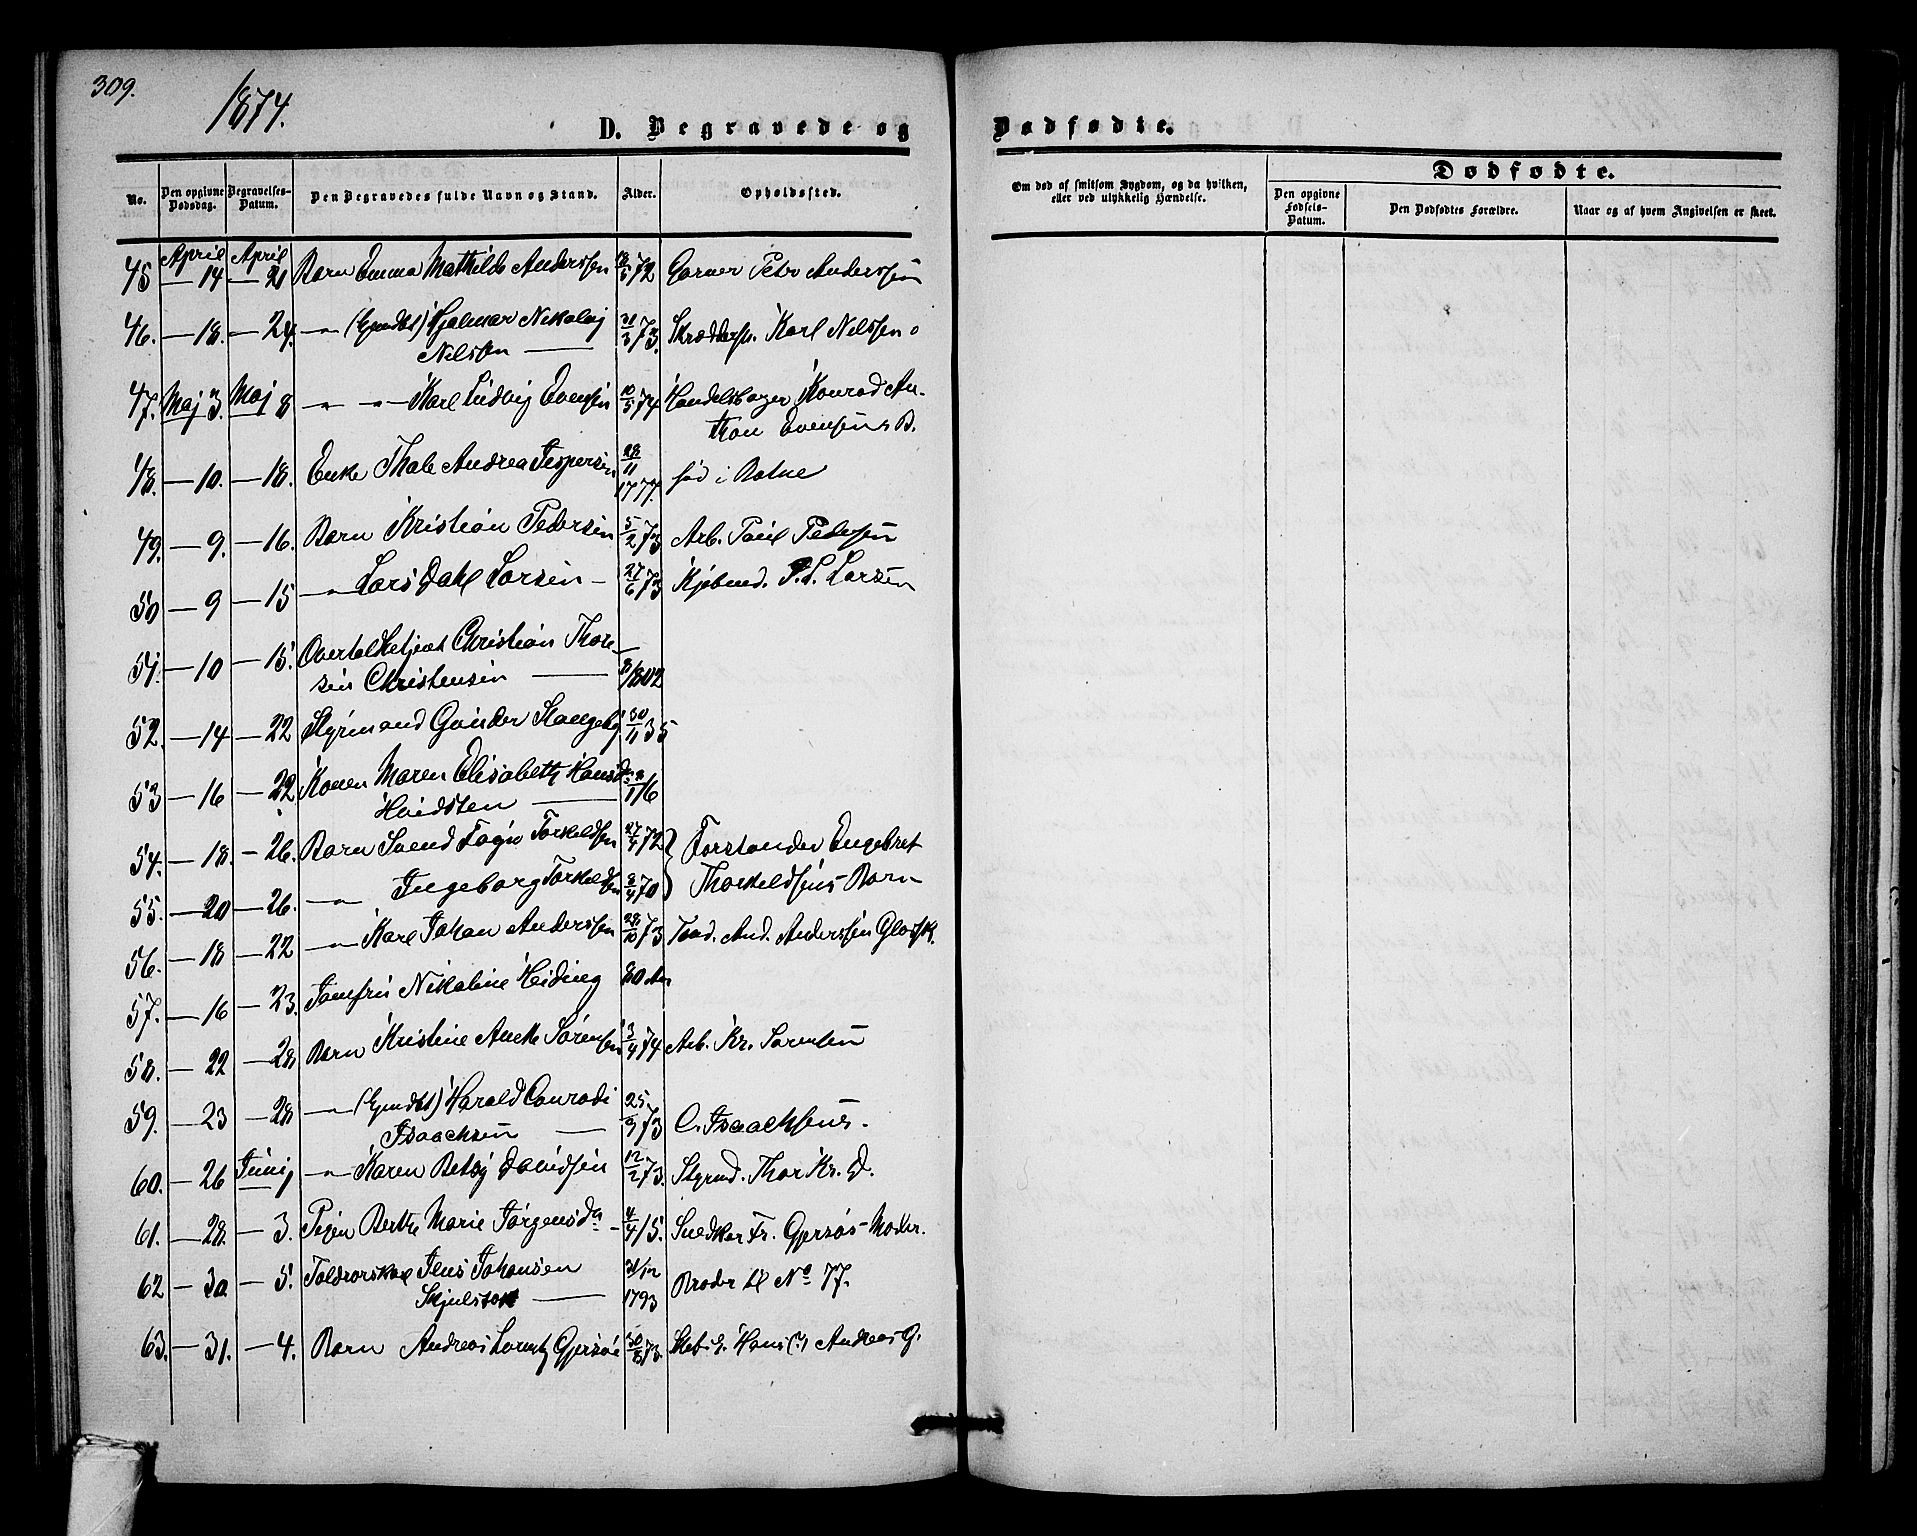 309.
1874.
D. Begravede og
Dødfødte.
No.
Den opgivne Dødsdag.
Begravelses-Datum.
Den Begravedes fulde Navn og Stand.
Alder.
Opholdssted.
Om død af smitsom Sygdom, og da hvilken, eller ved ulykkelig Hændelse.
Dødfødte.
Den opgivne Fødsels-Datum.
Den Dødfødtes Forældre.
Naar og af hvem Angivelsen er skeet.
April April
45 — 14 — 21 Barn Emma Mathilde Anderssen 72 Garver Petr Anderssen
46. — 18. — 24. — " — (Ejendbt) Hjalmar Nikolaj 31/3 73. Skrædderm. Karl Nilssen
Nilssen —
47. Maj 3. Maj 8 — " — " — Karl Ludvig Evensen 10/5 74 Handelsborger Konrad An-
thon Evensens B.
48. — 10. — 18. Enke Thale Andrea Jespersen 28/11 1777. fød i Botne
49. — 9. — 16. Barn Kristian Pedersen 5/2 73 Arb. Paul Pedersen
50 — 9 — 15 — " — Lars Dahl Larsen — 27/6 73 Kjøbmd. P. L. Larsen
51. — 10 — 15. Overtoldbetjent Christian Thore-
sen Christensen — 1802
52. — 14 — 22 Styrmand Gunder Stangeby 30/11 35
53 — 16 — 22 Konen Maren Elisabeth Hansd. /16
Hvidsten —
54. — 18. — 26. Barn Svend Foyn Torkeldsen 27/4 72 Forstander Engebret
55. — 20 — 26. — " — Ingeborg Torkeldsen 70 Thorkeldsens Børn
56. — 18 — 22 — " — Karl Johan Anderssen 28/10 73 Tønd. And. Anderssen
57. — 16 — 23. Jomfru Nikoline Heiding 80 Aar
58. — 22 — 28 Barn Kristine Anette Sørensen 3/4 74 Arb. Kr. Sørensen
59. — 23 — 28 — " — (Ejendbt) Harald Conradi 25/9 73 C. Isaachsens.
Isaachsen —
60. — 26 Junij — " — Karen Betsy Davidsen 12/2 73. Styrmd. Thor Kr. D.
61. — 28. — 3. Pigen Berthe Marie Jørgensdr. — 4/4 15. Snedker Fr. Gjersøs Moder.
62 — 30. — 5. Toldrorskarl Jens Johansen 31/12 1793 Broder til No 77.
Skjelsson —
63. — 31. — 4. Barn Andreas Lorentz Gjersøe 30/8 73. Skb. g. Hans (?) Andreas G.